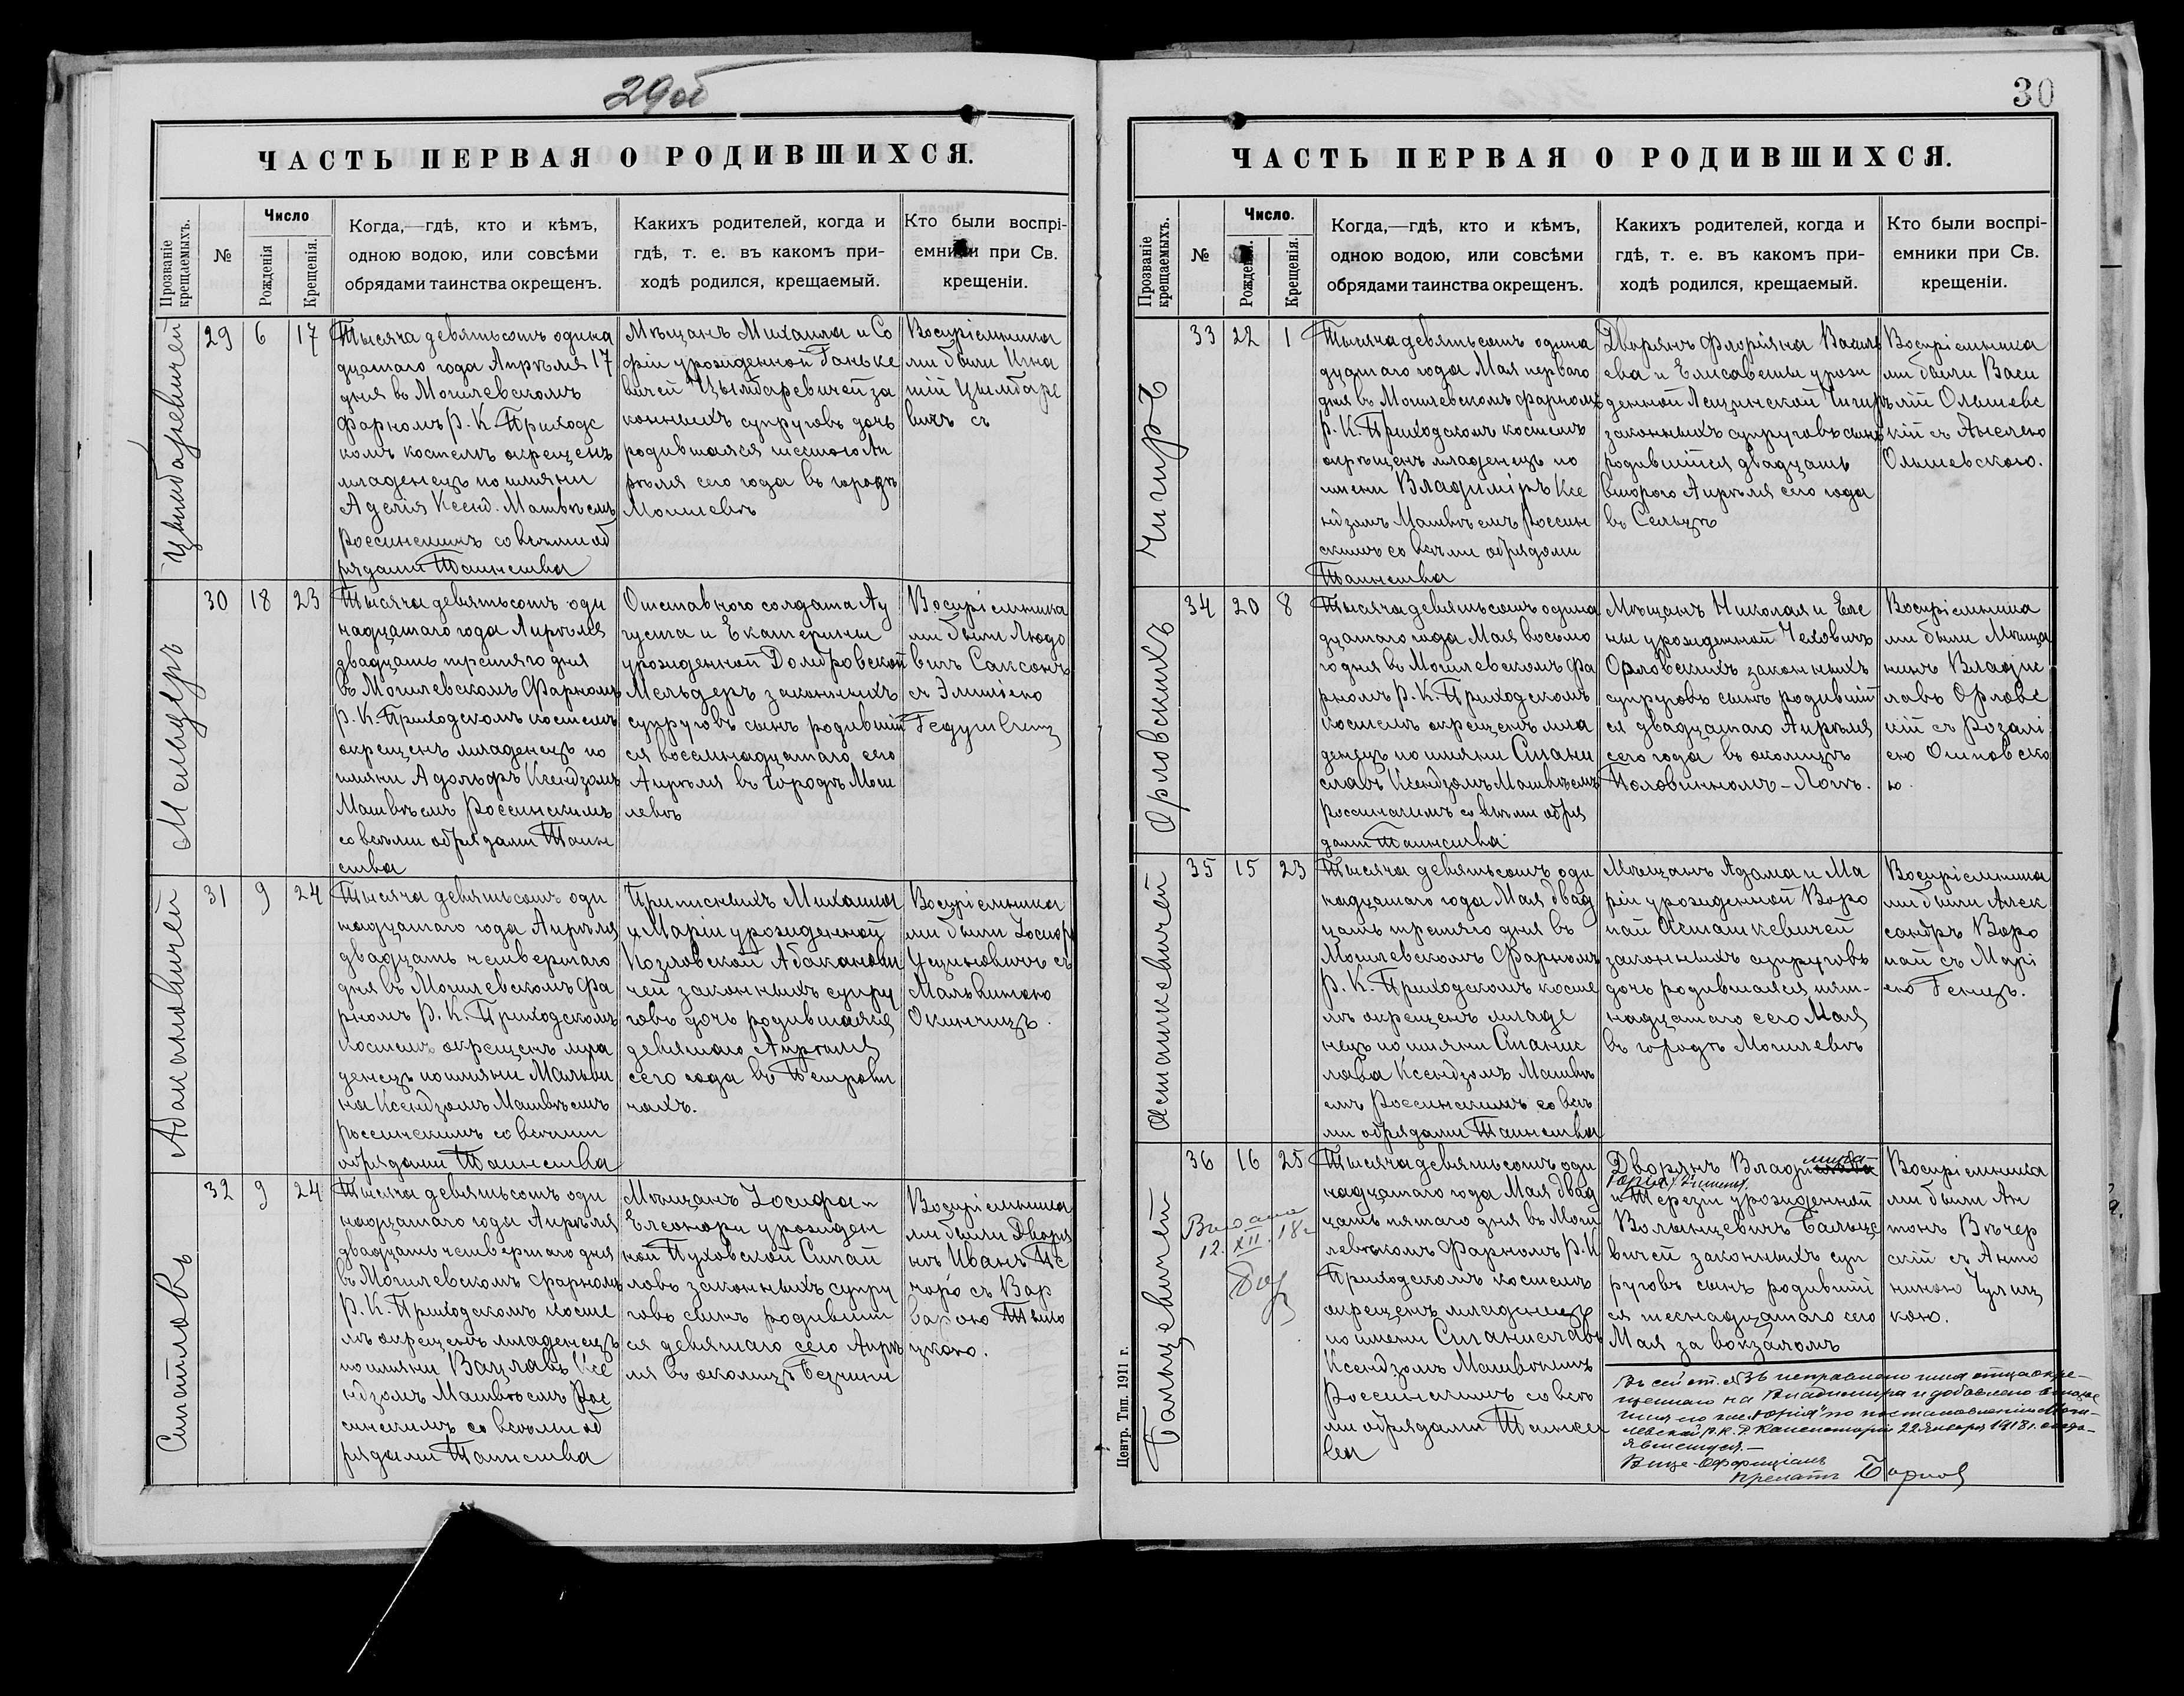 29об
ЧАСТЬ ПЕРВАЯ О РОДИВШИХСЯ.
Прозваніе крещаемыхъ.
№
Число
Рожденія
Крещенія.
Когда,—гдѣ, кто и кѣмъ,
одною водою, или совсѣми
обрядами таинства окрещенъ.
Какихъ родителей, когда и
гдѣ, т. е. въ какомъ при-
ходѣ родился, крещаемый.
Кто были воспрі-
емники при Св.
крещеніи.
Цымбаревичей
29 6 17
Тысяча девятьсотъ одина
дцатаго года Апрѣля 17
дня въ Могилевскомъ
Фарномъ Р. К. Приходс
комъ костелѣ окрещенъ
младенецъ по имяни
Аделя Ксенд. Матвѣемъ
Россинскимъ со всѣми об
рядами Таинства
Мѣщанъ Михаила и Со
фіи урожденной Ганьке
вичей Цымбаревичей за
конныхъ супруговъ дочь
родившаяся шестого Ап
рѣля сего года въ городѣ
Могилевѣ
Воспріемника
ми были Игна
тій Цымбаре
вичъ съ
Мельдеръ
30 18 23
Тысяча девятьсотъ оди
надцатаго года Апрѣля
двадцать третяго дня
въ Могилевскомъ Фарномъ
Р. К. Приходскомъ костелѣ
окрещенъ младенецъ по
имяни Адольфъ Ксендзомъ
Матвѣемъ Россинскимъ
со всѣми обрядами Таин
ства
Отставного солдата Ау
густа и Екатерины
урожденной Домбровской
Мельдеръ законныхъ
супруговъ сынъ родивший
ся восемнадцатаго сего
Апрѣля въ городѣ Моги
левѣ
Воспріемника
ми были Людо
вигъ Саксонъ
съ Эмилією
Абакановичей
31 9 24
Тысяча девятьсотъ оди
надцатаго года Апрѣля
двадцать четвертаго
дня въ Могилевскомъ Фа
рномъ Р. К. Приходскомъ
костелѣ окрещенъ мла
денецъ по имяни Мальви
на Ксендзомъ Матвѣемъ
Россинскимъ со всѣми
обрядами Таинства
Приписныхъ Михаила
и Маріи урожденной
Козловской Абаканови
чей законныхъ супру
говъ дочь родившаяся
девятаго Апрѣля
сего года въ Петрови
чахъ.
Воспріемника
ми были Іосифъ
съ
Мальвиною
Окинчицъ.
Ситайловъ
32 9 24
Тысяча девятьсотъ оди
надцатаго года Апрѣля
двадцать четвертаго дня
въ Могилевскомъ Фарномъ
Р. К. Приходскомъ косте
лѣ окрещенъ младенецъ
по имяни Вацлавъ Ксе
ндзомъ Матвѣемъ Рос
синскимъ со всѣми об
рядами Таинства
Мѣщанъ Іосифа и
Елеоноры урожден
ной Пуховской Ситай
ловъ законныхъ супру
говъ сынъ родивший
ся девятаго сего Апрѣ
ля въ околицѣ
Воспріемника
ми были Дворя
нъ Иванъ
съ Вар
варою
30
ЧАСТЬ ПЕРВАЯ О РОДИВШИХСЯ.
Прозваніе крещаемыхъ.
№
Число.
Рожденія.
Крещенія.
Когда,—гдѣ, кто и кѣмъ,
одною водою, или совсѣми
обрядами таинства окрещенъ.
Какихъ родителей, когда и
гдѣ, т. е. въ какомъ при-
ходѣ родился, крещаемый.
Кто были воспрі-
емники при Св.
крещеніи.
Чигиръ
33 22 1
Тысяча девятьсотъ одина
дцатаго года Мая перваго
дня въ Могилевскомъ Фарномъ
Р. К. Приходскомъ костелѣ
окрещенъ младенецъ по
имени Владиміръ Ксе
ндзомъ Матвѣемъ Россин
скимъ со всѣми обрядами
Таинства
Дворянъ Флоріяна Василь
ева и Елисаветы урож
денной Лещинской Чигиръ
законныхъ супруговъ сынъ
родившійся двадцать
второго Апрѣля сего года
въ Сельцѣ
Воспріемника
ми были Васи
лій Ольшевс
кій съ Анелею
Ольшевскою.
Орловскихъ
34 20 8
Тысяча девятьсотъ одина
дцатаго года Мая восьмо
го дня въ Могилевскомъ Фа
рномъ Р. К. Приходскомъ
костелѣ окрещенъ мла
денецъ по имяни Стани
славъ Ксендзомъ Матвѣемъ
Россинскимъ со всѣми обря
дами Таинства
Мѣщанъ Николая и Еле
ны урожденной Чеховичъ
Орловскихъ законныхъ
супруговъ сынъ родившій
ся двадцатаго Апрѣля
сего года въ околицѣ
Половинномъ-Логѣ.
Воспріемника
ми были Мѣща
нинъ Владис
лавъ Орловс
кій съ Розалі
ею Осиповско
ю.
Осташкевичей
35 15 23
Тысяча девятьсотъ оди
надцатаго года Мая двад
цать третяго дня въ
Могилевскомъ Фарномъ
Р. К. Приходскомъ косте
лѣ окрещенъ младе
нецъ по имяни Станис
лава Ксендзомъ Матвѣ
емъ Россинскимъ со всѣ
ми обрядами Таинства
Мѣщанъ Адама и Ма
ріи урожденной Воро
пай Осташкевичей
законныхъ супруговъ
дочь родившаяся пят-
надцатаго сего Мая
въ городѣ Могилевѣ
Воспріемника
ми были Алек
сандръ Воро
пай съ Марі
ею Генцъ.
Бальцевичей
36 16 25
Выдана
12.XII.18г
Тысяча девятьсотъ оди
надцатаго года Мая двад
цать пятаго дня въ Моги
левскомъ Фарномъ Р. К
Приходскомъ костелѣ
окрещенъ младенецъ
по имени Станиславъ
Ксендзомъ Матвѣемъ
Россинскимъ со всѣ
ми обрядами Таинс
тва
Дворянъ Влади мира-
Юрія
и Терезіи урожденной
Волынцевичъ Бальце
вичей законныхъ суп
руговъ сынъ родивший
ся шестнадцатаго сего
Мая за вокзаломъ
Воспріемника
ми были Ан
тонъ Вѣчер
скій съ Анто
ниною
кою.
Въ сей ст. №36 исправлено имя отца окре-
щеннаго на Владимира и добавлено второе
имя его "Юрія" по постановленію Моги-
левской Р. К. Д. Консисторіи 22 Января 1918 г.
Вице-Оффиціалъ
Прелатъ
Центр. Тип. 1911 г.